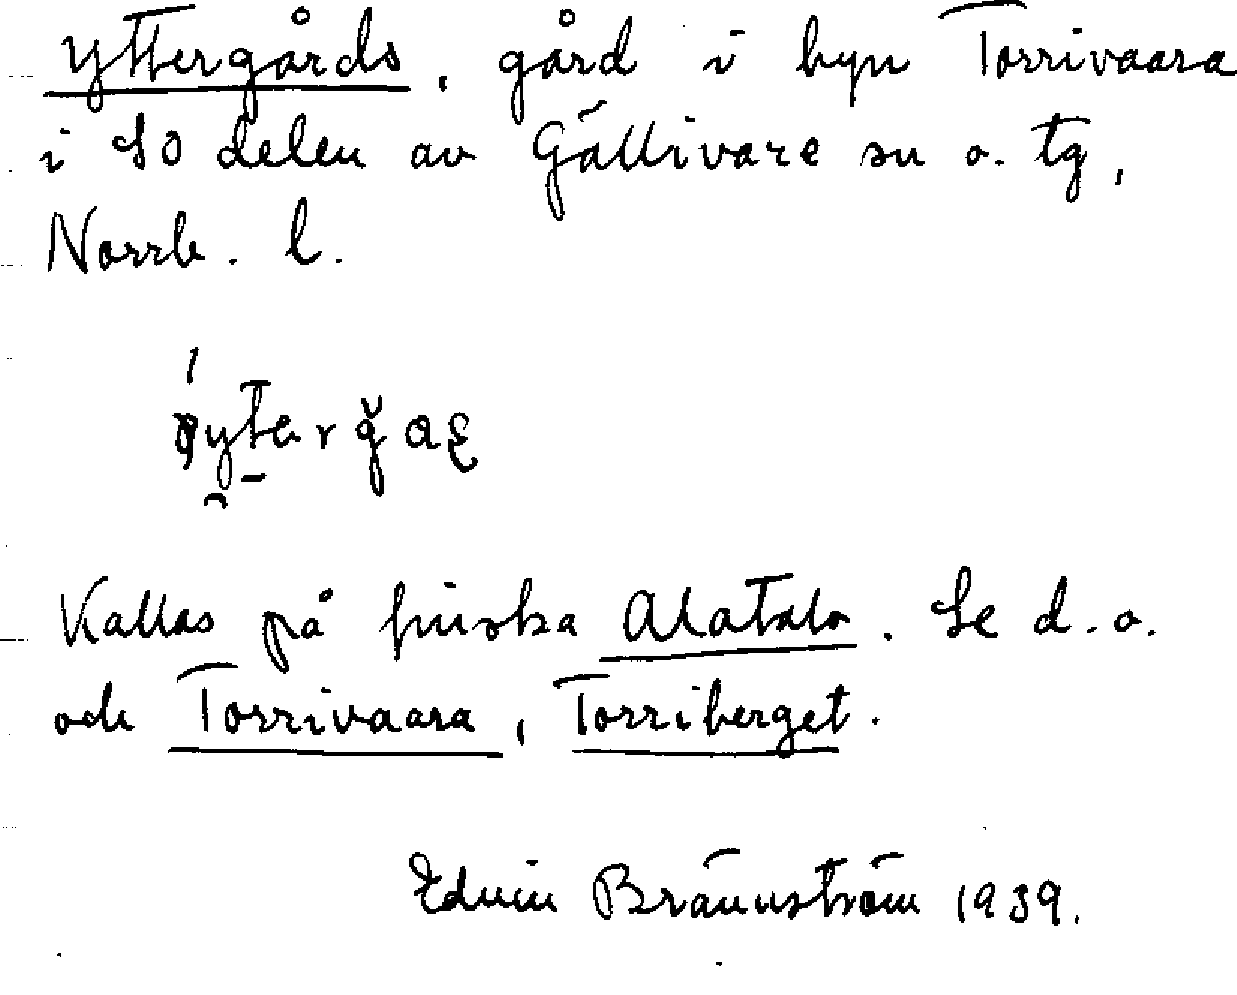 Yttergårds, gård i byn Torrivaara
i SO delen av Gällivare sn o. tg,
Norrb. l.
Kallas på finska Alatalo. Se d. o.
och Torrivaara, Torriberget.
Edvin Brännström 1939.